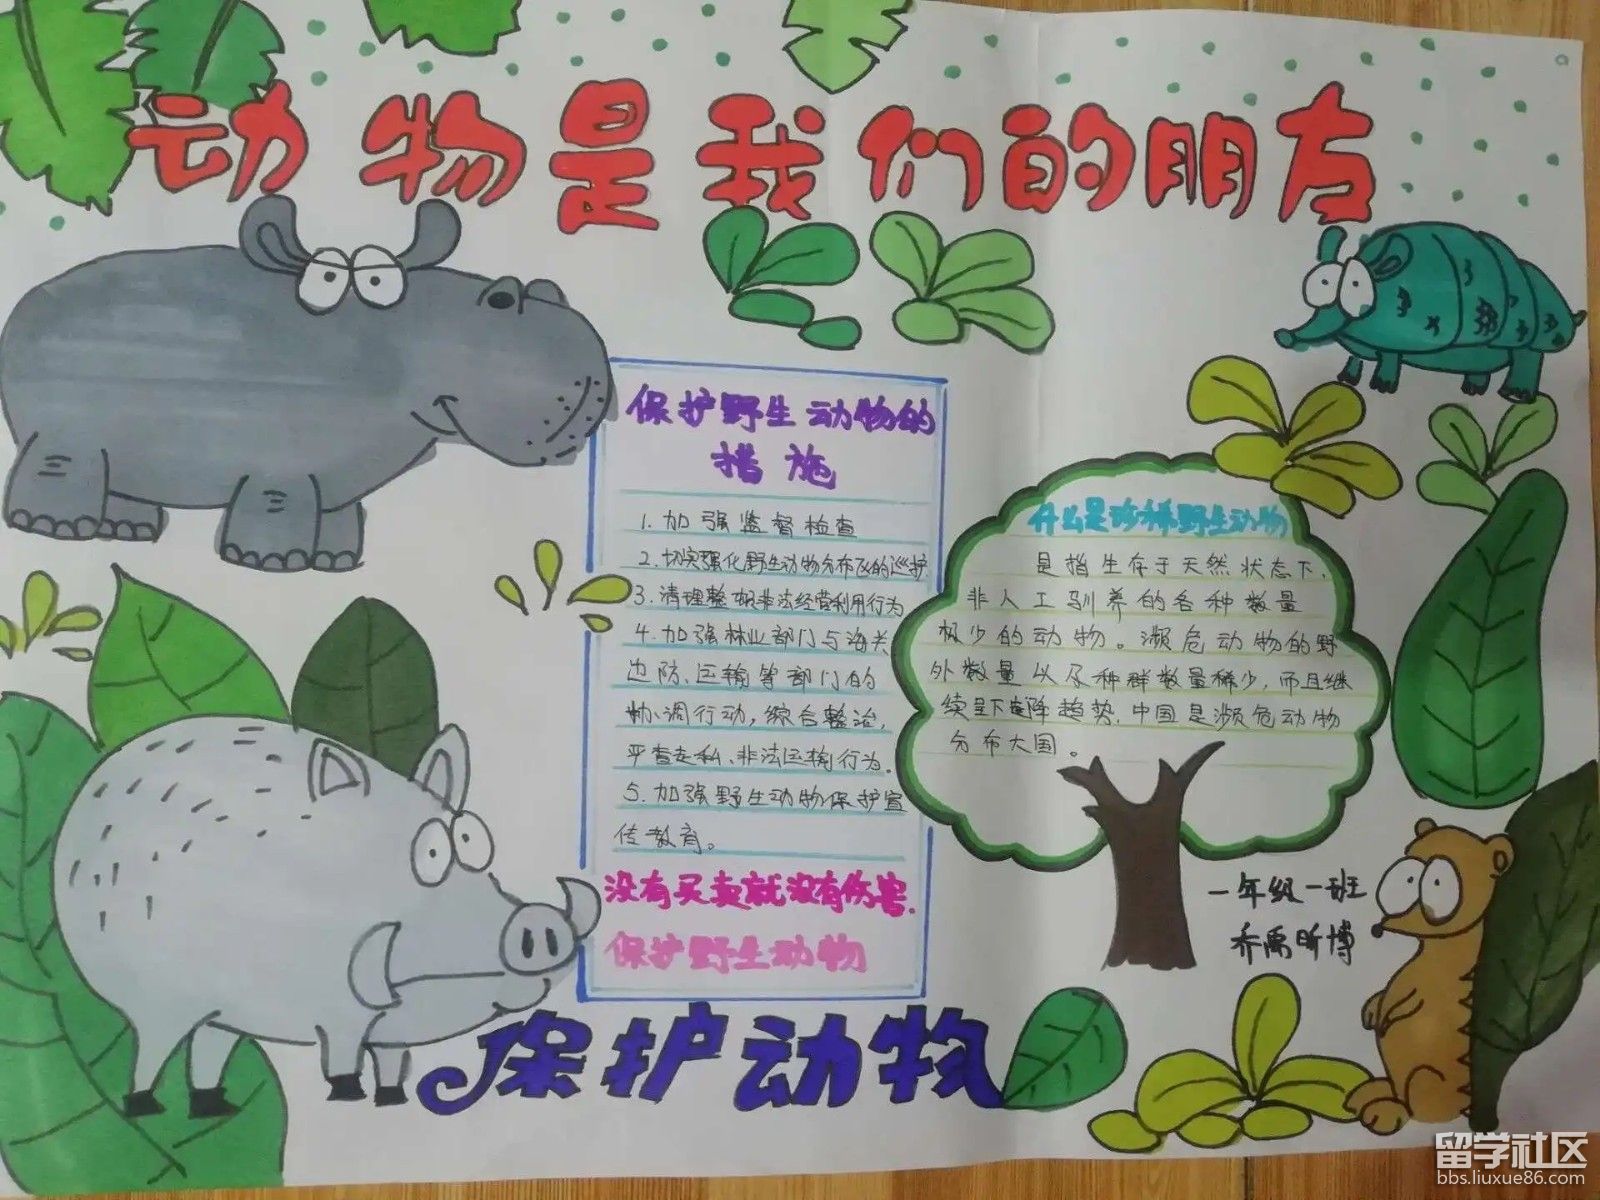 动物是我们的朋友
保护野生动物的
措施
1.加强监督检查
2.切实强化野生动物分布区的巡护
3.清理整顿非法经营利用行为
4.加强林业部门与海关
边防、运输等部门的
协调行动,综合整治,
严查走私、非法运输行为.
5.加强野生动物保护宣
传教育。
没有买卖就没有伤害.
保护野生动物
什么是珍稀野生动物
是指生存于天然状态下,
非人工驯养的各种数量
极少的动物。濒危动物的野
外数量以及种群数量稀少,而且继
续呈下降趋势.中国是濒危动物
分布大国。
一年级一班
乔禹昕博
保护动物
留学社区
bbs.liuxue86.com